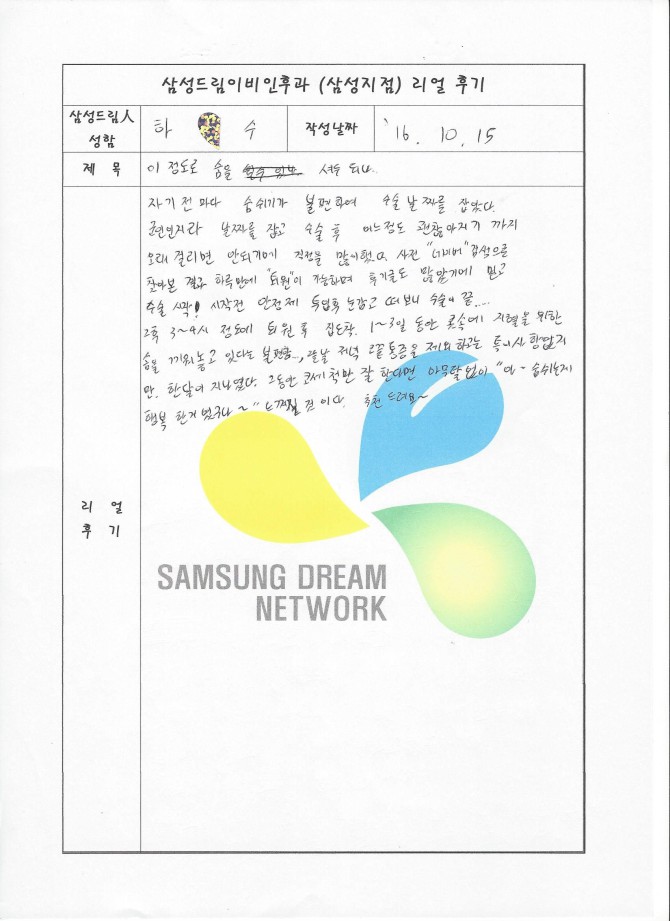 삼성드림이비인후과 (삼성지점) 리얼 후기
삼성드림人
성함
하 수
작성날짜
'16. 10. 15
제 목
이 정도로 숨을 쉬되나..
자기 전마다 숨쉬기가 불편하여 수술 날짜를 잡았다.
군인인지라 날짜를 잡고 수술 후 어느정도 괜찮아지기 까지
오래 걸리면 안되기에 걱정을 많이했다. 사전 "네이버" 검색으로
찾아본 결과 하루만에 "퇴원"이 가능하며 후기글도 많았기에 믿고
수술 시작! 시작전 안정제 투입후 눈감고 떠보니 수술이 끝....
오후 3~4시 정도에 퇴원후 집도착. 1~3일 동안 콧속에 지혈을 위한
솜을 끼워놓고 있다는 불편함..., 저녁 코끝 통증을 제외하고는 특이사항없지
만. 한달이 지나였다. 그동안 코세척만 잘 한다면 아무탈없이 "아- 숨쉬는게
행복 한거 였구나~" 느껴질 것 이다. 추천 드려요~
리 얼
후 기
SAMSUNG DREAM
NETWORK